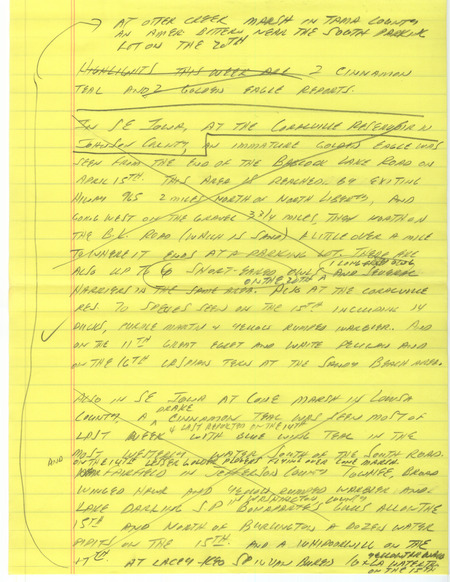 AT OTTER CREEK MARSH IN TAMA COUNTY
AN AMER BITTERN NEAR THE SOUTH PARKING
LOT ON THE 20TH
HIGHLIGHTS THIS WEEK ARE 2 CINNAMON
TEAL AND 2 GOLDEN EAGLE REPORTS.
IN SE IOWA, AT THE CORALVILLE RESERVOIR IN
JOHNSON COUNTY, AN IMMATURE GOLDEN EAGLE WAS
SEEN FROM THE END OF THE BABCOCK LAKE ROAD ON
APRIL 15TH. THIS AREA IS REACHED BY EXITING
965 2 MILES NORTH OF NORTH LIBERTY, AND
GOING WEST ON THE GRAVEL 3 3/4 MILES, THEN NORTH ON
THE B.L. ROAD (WHICH IS SAND) A LITTLE OVER A MILE
TO WHERE IT ENDS AT A PARKING LOT. THERE ARE
ALSO UP TO 6 SHORT-EARED OWLS AND SEVERAL
ON THE 20TH
HARRIERS IN THE SAME AREA. ALSO AT THE CORALVILLE
RES 70 SPECIES SEEN ON THE 15TH INCLUDING 14
DUCKS, PURPLE MARTIN & YELLOW RUMPED WARBLER. AND
ON THE 11TH GREAT EGRET AND WHITE PELICAN AND
ON THE 16TH CASPIAN TERN AT THE SANDY BEACH AREA.
ALSO IN SE IOWA AT CONE MARSH IN LOUISA
DRAKE
COUNTY, A CINNAMON TEAL WAS SEEN MOST OF
& LAST REPORTED ON THE 14TH
LAST WEEK WITH BLUE WING TEAL IN THE
MOST WESTERLY WATER SOUTH OF THE SOUTH ROAD.
AND ON THE 14TH LESSER GOLDEN PLOVERS FLYING OVER CONE MARSH.
FAIRFIELD IN JEFFERSON COUNTY TOWHEE, BROAD
WINGED HAWK AND YELLOW RUMPED WARBLER AND
IN WASHINGTON COUNTY
LAKE DARLING SP BONAPARTE'S GULLS ALL ON THE
15TH AND NORTH OF BURLINGTON A DOZEN WATER
PIPITS ON THE 15TH. AND A WHIPPOORWILL ON THE
17TH. AT LACEY-KEO SP IN VAN BUREN
ON THE 15TH